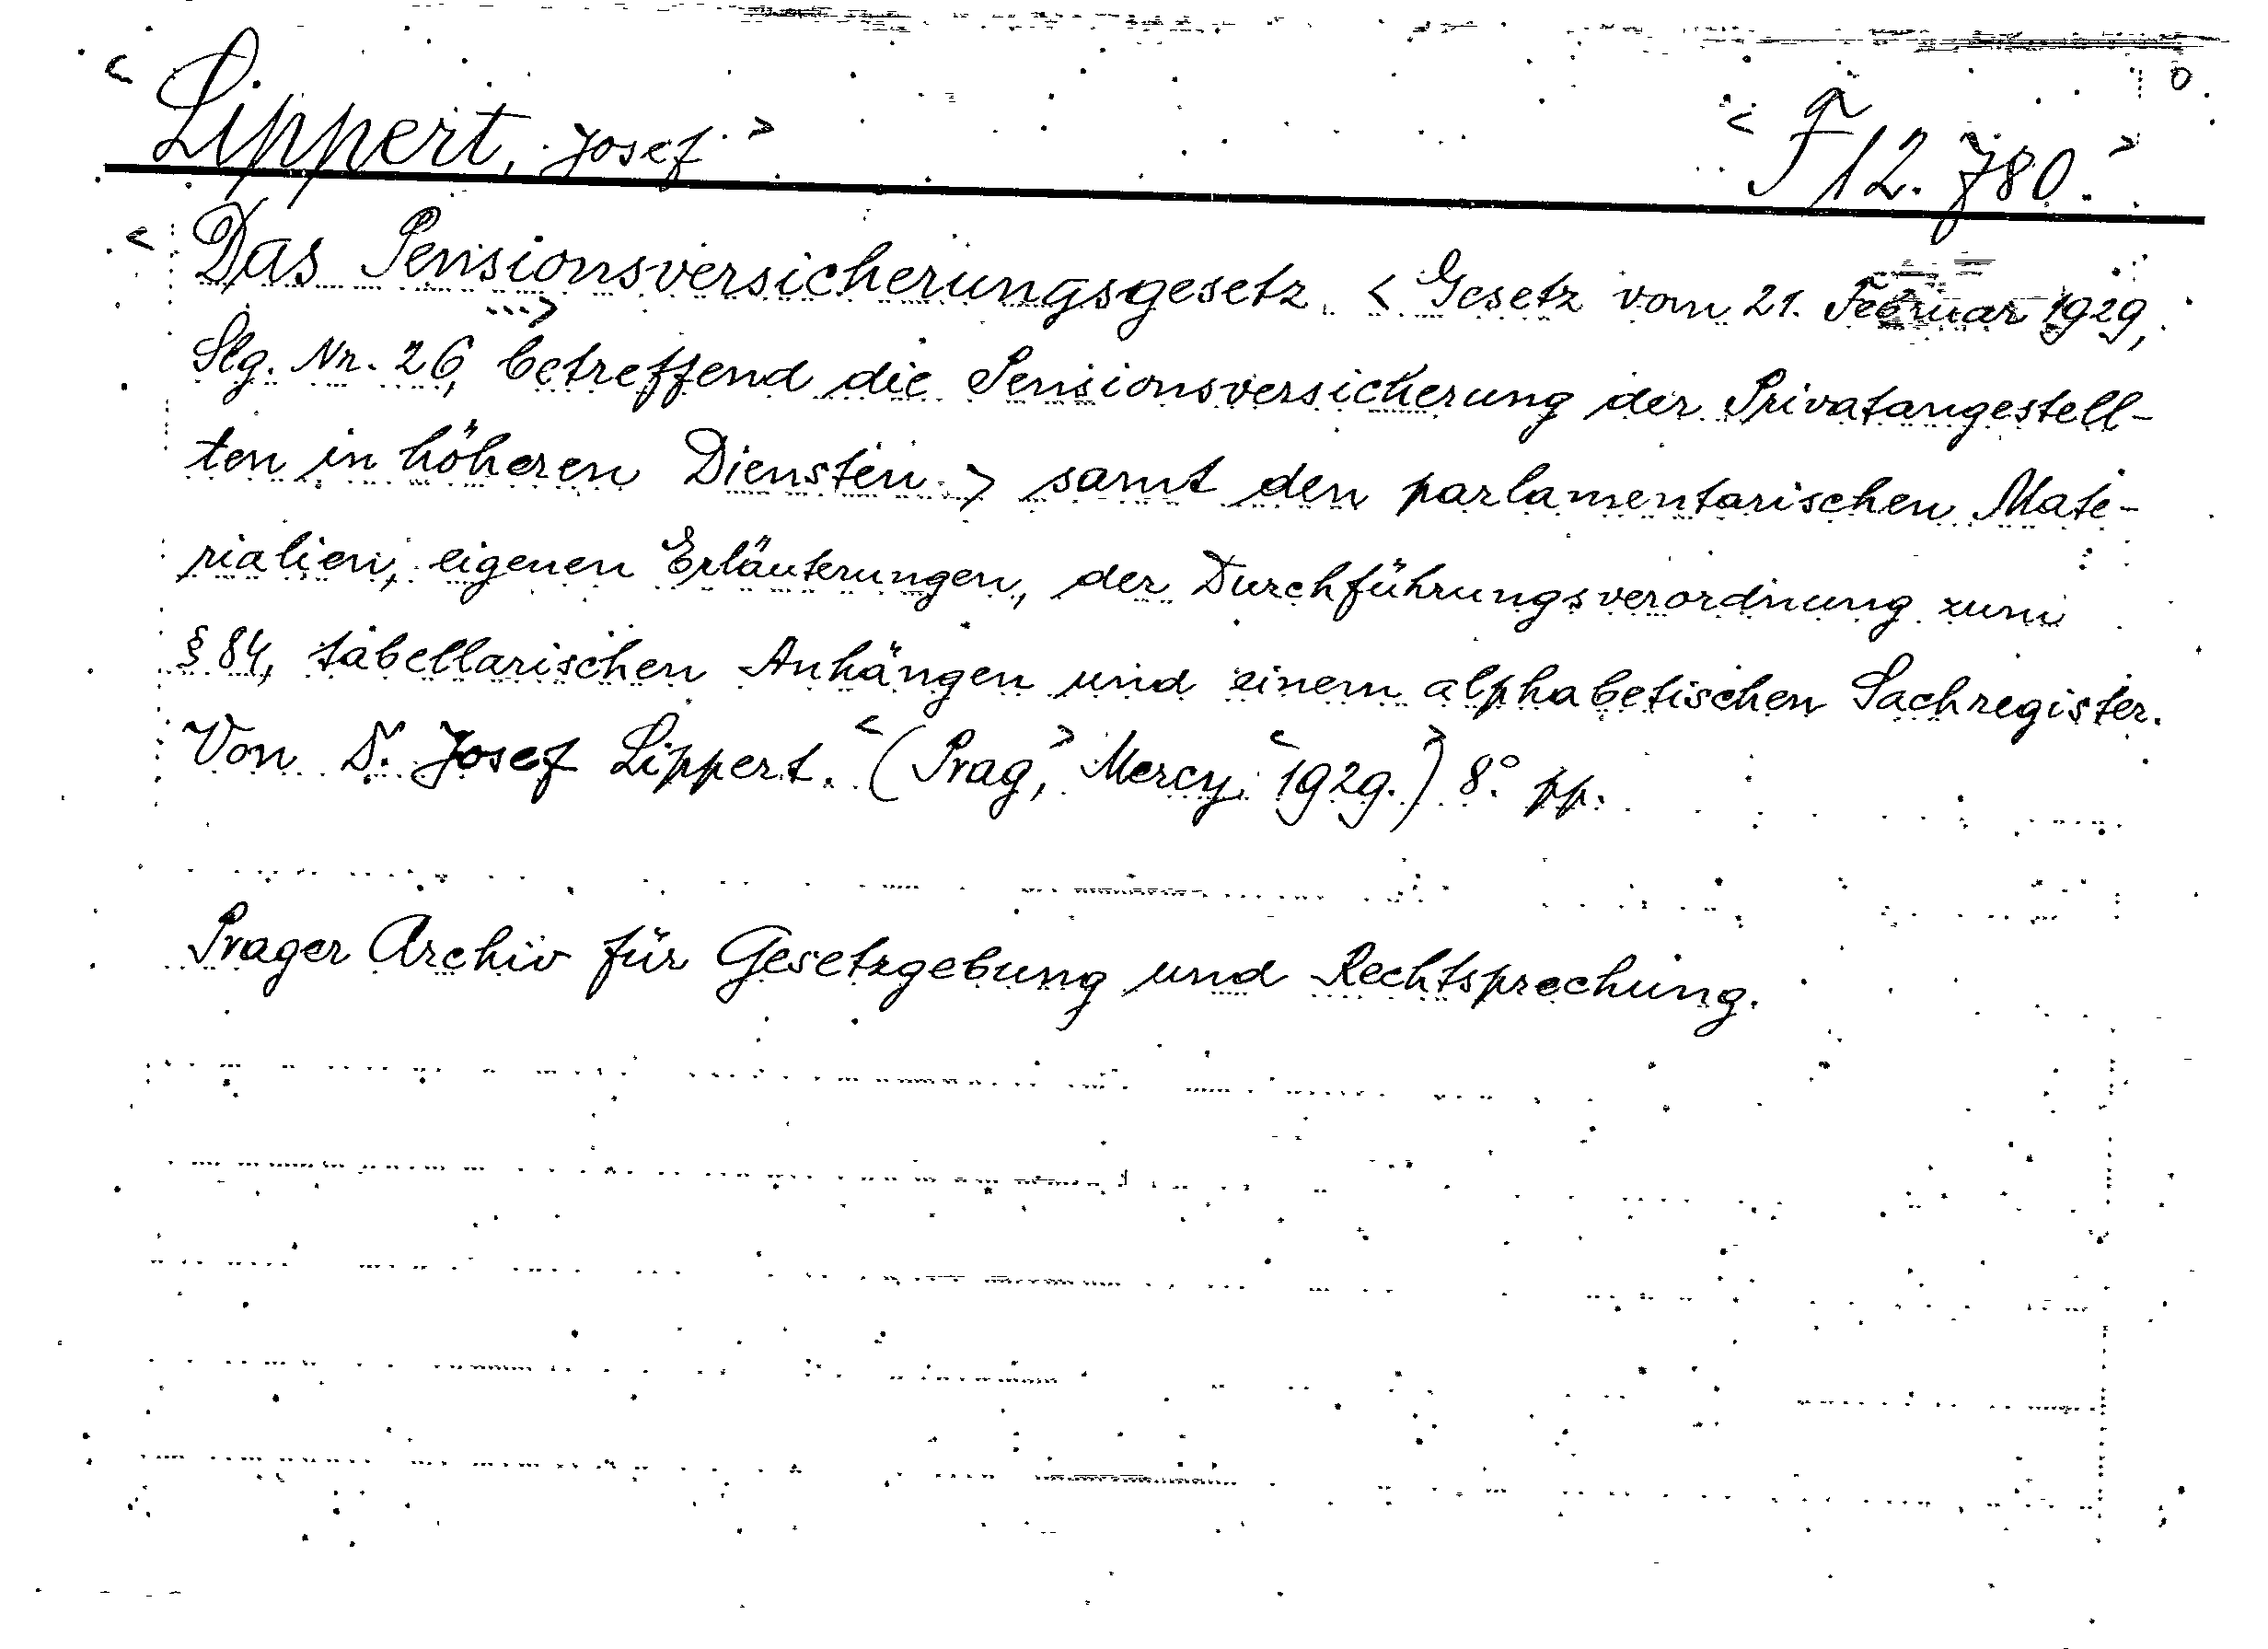 < Lippert, Josef > < F 12.780. >
< Das Pensionsversicherungsgesetz. < Gesetz vom 21. Februar 1929,
Slg. Nr. 26, ...> betreffend die Pensionsversicherung der Privatangestell-
ten in höheren Diensten. > samt den parlamentarischen Mate-
rialien, eigenen Erläuterungen, der Durchführungsverordnung zum
§ 84, tabellarischen Anhängen und einem alphabetischen Sachregister.
Von D. Josef Lippert. < (Prag, > Mercy, < 1929. > ) 8.° pp.
Prager Archiv für Gesetzgebung und Rechtsprechung.